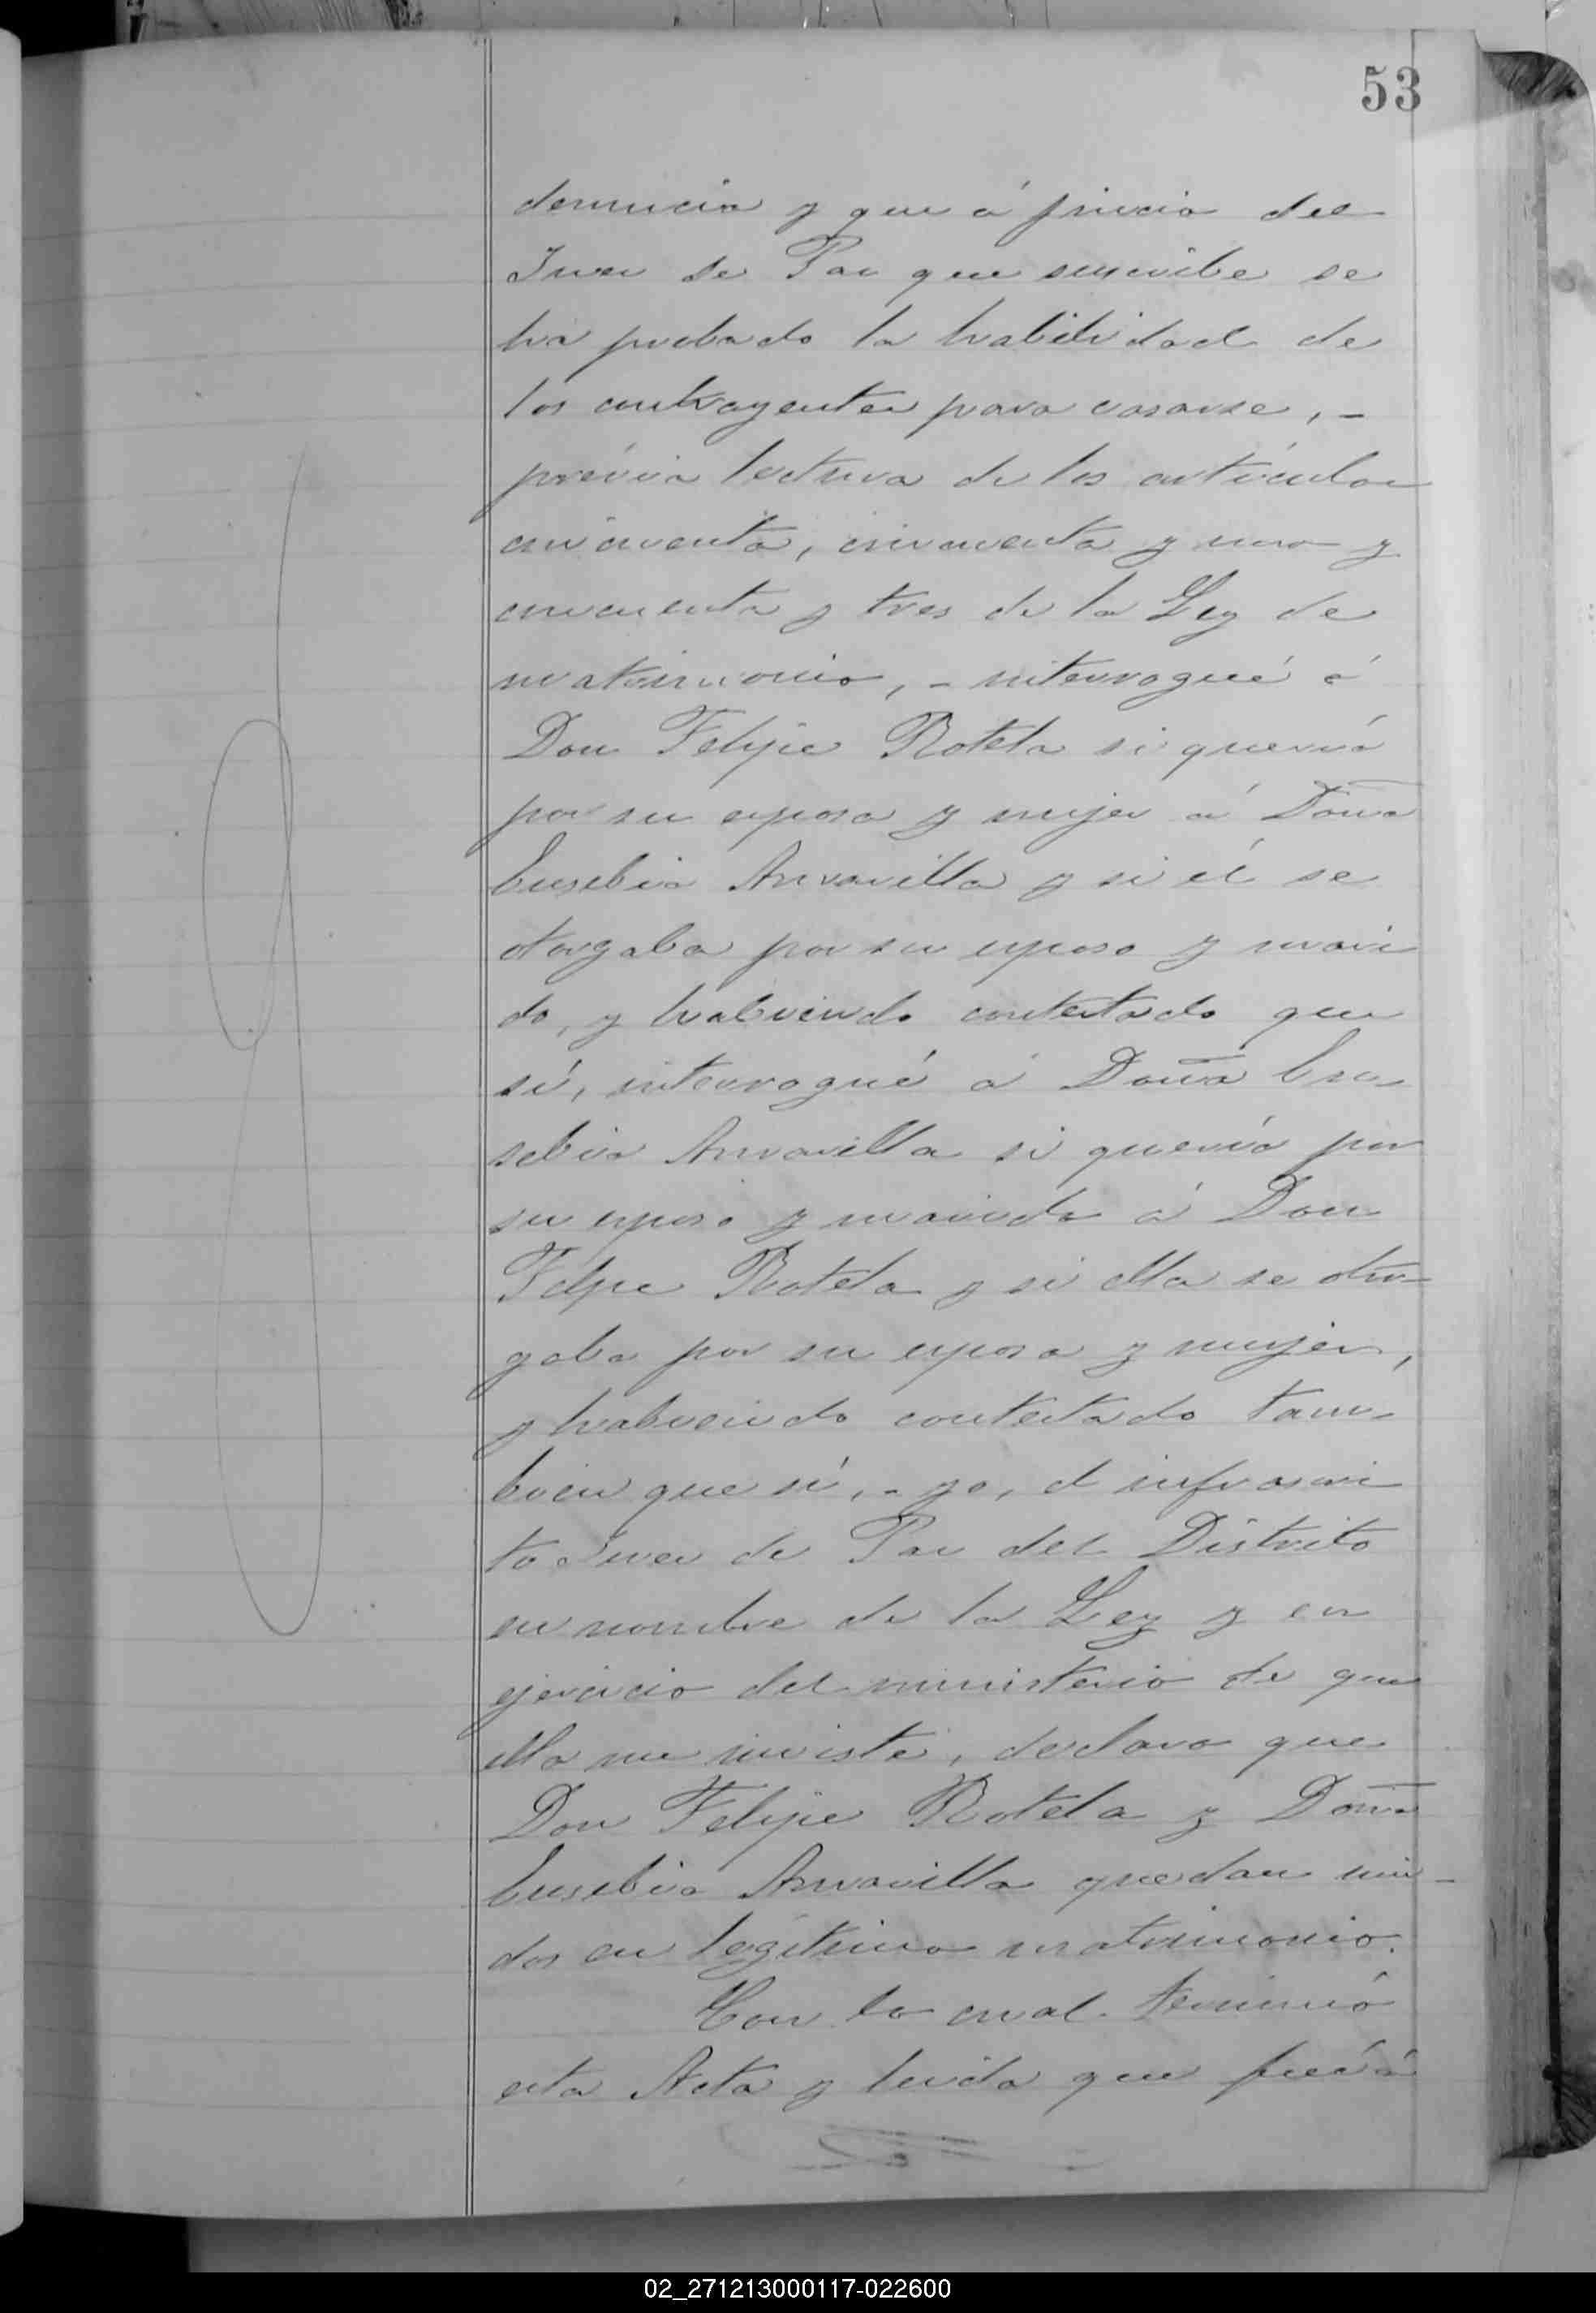 53
denuncia y que á juicio del
Juez de Paz que suscribe se
ha probado la habilidad de
los contrayentes para casarse, -
prévia lectura de los artículos
cincuenta, cincuenta y uno y
cincuenta y tres de la Ley de
matrimonio, - interrogué á
Don Felipe Rotela si quería
por su esposa y mujer á Doña
Eusebia Anzavilla y si él se
otorgaba por su esposo y mari
do, y habiendo contestado que
sí, interrogué á Doña Eu-
sebia Anzavilla si quería por
su esposo y marido á Don
Felipe Rotela y si ella se otor-
gaba por su esposa y mujer,
y habiendo contestado tam-
bien que sí, - yo, el infrascri
to Juez de Paz del Distrito
en nombre de la Ley y en
ejercicio del ministerio de que
ella me inviste, declaro que
Don Felipe Rotela y Doña
Eusebia Anzavilla quedan uni-
dos en legítimo matrimonio.
Con lo cual terminó
esta Acta y leida que fué á
02_271213000117-022600